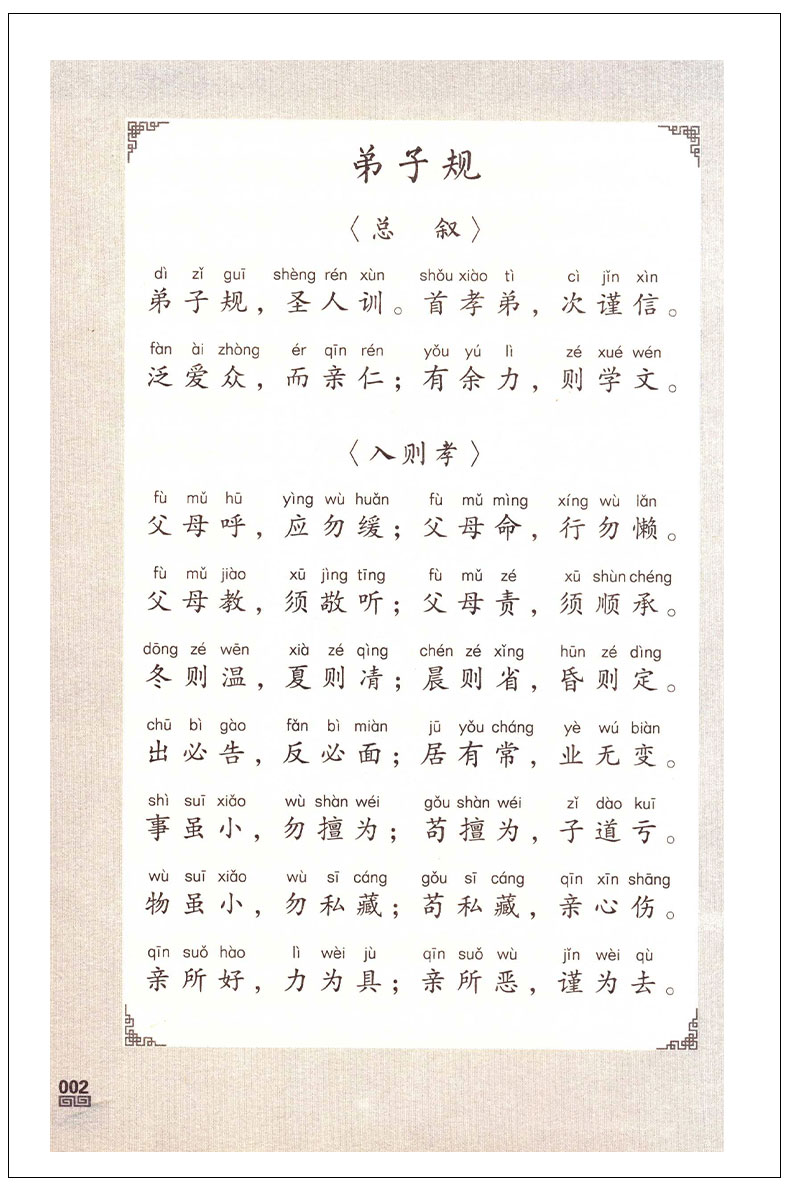 弟子规
〈总 叙〉
dì zǐ guī shèng rén xùn shǒu xiào tì cì jǐn xìn
弟子规，圣人训。首孝弟，次谨信。
fàn ài zhòng ér qīn rén yǒu yú lì zé xué wén
泛爱众，而亲仁；有余力，则学文。
〈入则孝〉
fù mǔ hū yìng wù huǎn fù mǔ mìng xíng wù lǎn
父母呼，应勿缓；父母命，行勿懒。
fù mǔ jiào xū jìng tīng fù mǔ zé xū shùn chéng
父母教，须敬听；父母责，须顺承。
dōng zé wēn xià zé qìng chén zé xǐng hūn zé dìng
冬则温，夏则凊；晨则省，昏则定。
chū bì gào fǎn bì miàn jū yǒu cháng yè wú biàn
出必告，反必面；居有常，业无变。
shì suī xiǎo wù shàn wéi gǒu shàn wéi zǐ dào kuī
事虽小，勿擅为；苟擅为，子道亏。
wù suī xiǎo wù sī cáng gǒu sī cáng qīn xīn shāng
物虽小，勿私藏；苟私藏，亲心伤。
qīn suǒ hào lì wèi jù qīn suǒ wù jǐn wèi qù
亲所好，力为具；亲所恶，谨为去。
002